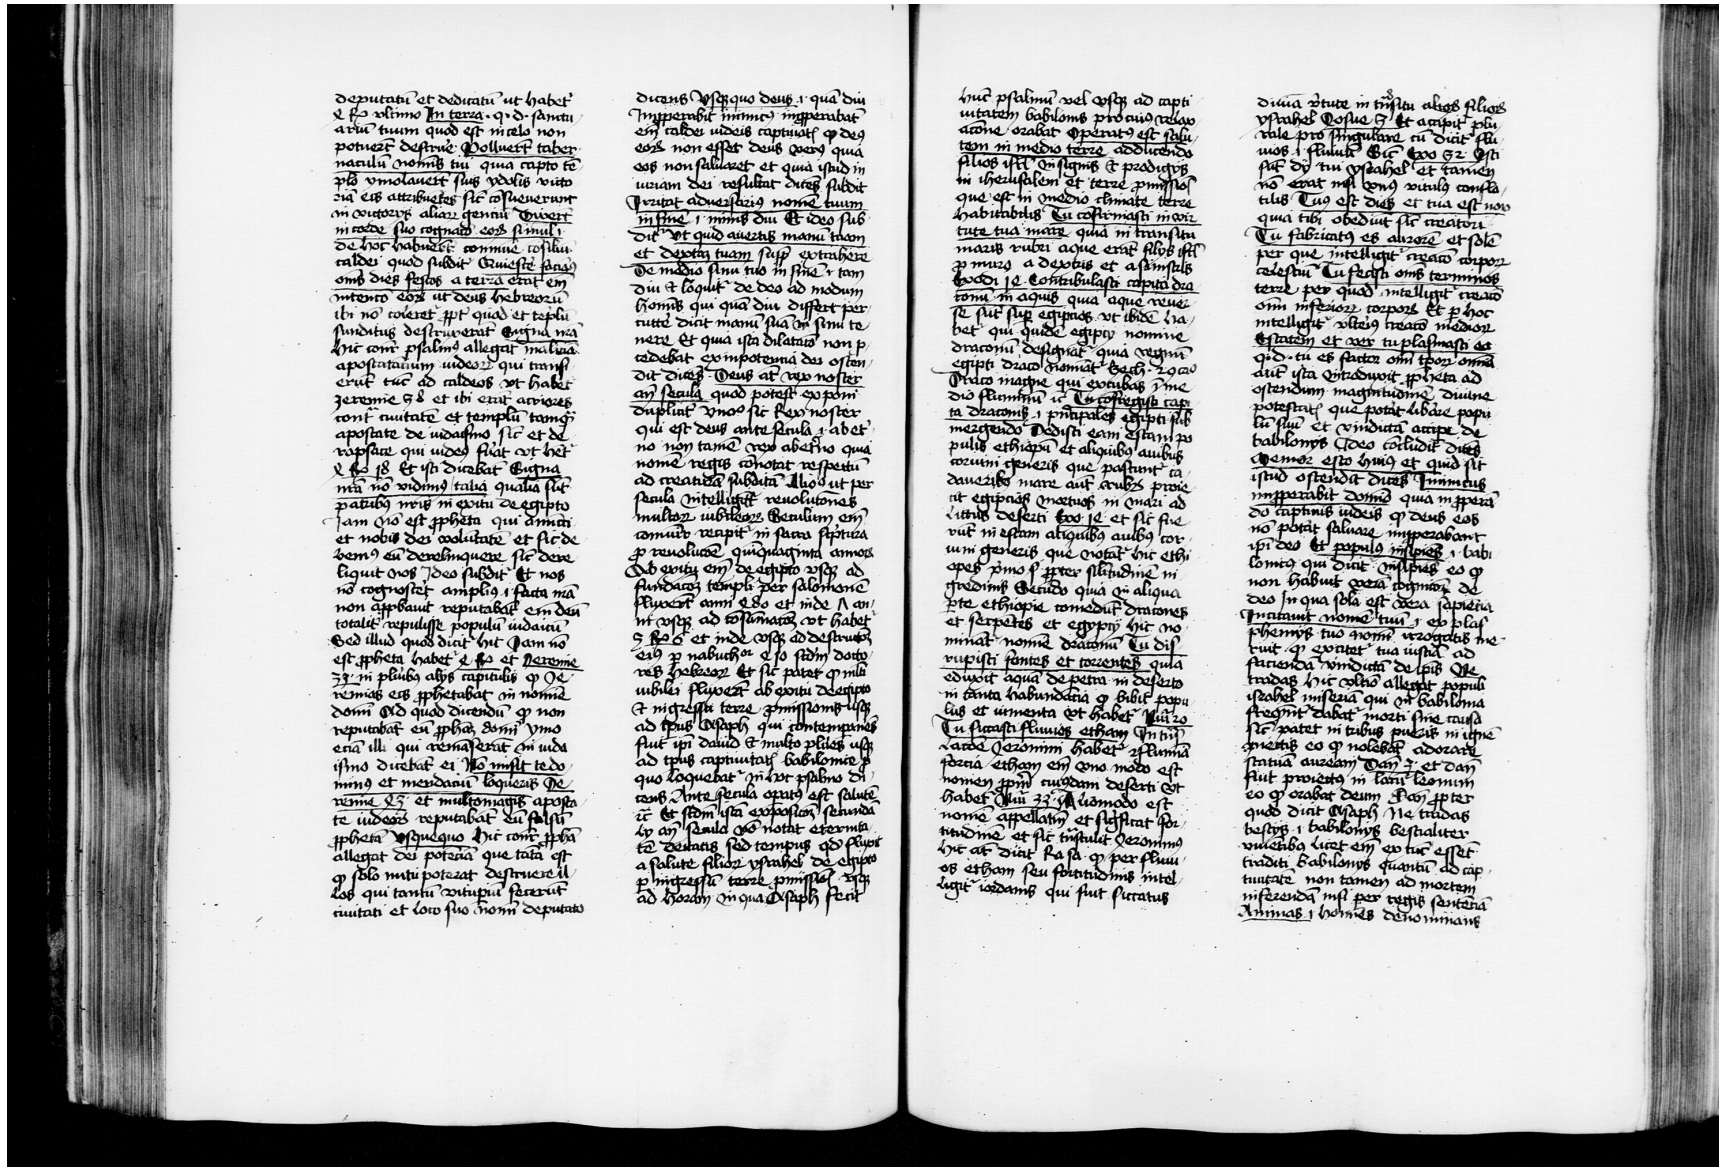 deputatū et dedicatū ut habet᷑
4 Ro ultimo In terra · q · d · sanctu
ariū tuum quod est in celo non
potuer̄t destrue᷑ Polluer̄t taber
naculū nominis tui quia capto tē
plo ymolauer̄t suis ydolis uicto
riā eis attribuētes sic̄ cōsueuerunt
in uictoriis aliar̄ genciū Dixer̄t
in corde suo cognatō eor̄ simul i ·
de hoc habuer̄t cōmune cōsiliū
caldei quod subdit Quiesce᷑ faciam9
om̄s dies festos a terra erat em̄
intencō eor̄ ut deus hebreorū
ibi nō coleret᷑ ppt᷑ quod et teplū
funditus destruxerāt Signa nr̄a
Hic cont᷑ psalm9 allegat maliciā
apostatarum iudeor̄ qui trans
erūt tūc ad caldeos ut habet᷑
Jeremie 52 et ibi erāt acriores
cont᷑ ciuitatē et templū tamq̄
apostate de iudaismo sic̄ et de
rapsace qui iude9 fuāt ut het᷑
4 Ro 18 Et isti dicebāt Signa
nr̄a nō vidim9 talia qualia sūt
patrib9 nr̄is in exitu de egipto
Jam nō est ppheta qui annūci
et nobis dei uolūtatē et sic de
bem9 eū derelinquere sic̄ dere
liquit nos Ideo subdit᷑ Et nos
nō cognoscet ampli9 i · facta nr̄a
non approbauit reputabāt em̄ deū
totalit᷑ repulisse populū iudaicū
Sed illud quod dicit᷑ hic Jam nō
est ppheta habet᷑ 4 Ro et Jeremie
in plurib9 aliis capitulis q̄ Je
remias eis pphetabat in nomie
domī Ad quod dicendū q̄ non
reputabāt eū pphāz domī ymo
eciā illi qui remāserāt in iuda
ismo dicebāt ei Nō misit te do
min9 et mendaciū loqueris Je
remie 43 et multomagis aposta
te iudeor̄ reputabāt eū falsū
pphetā Usquequo Hic cont᷑ pphā
allegat dei potēciā que tāta est
q̄ solo nutu poterat destruere il
los qui tantū uitupiū fecerūt
ciuitati et loco suo nomī deputato
dicens Usquequo deus · i · quā diu
Improperabit inimic9 improperabāt
em̄ caldei iudeis captiuatis q̄ de9
eor̄ non esset deus uer9 quia
eos non saluaret et quia istud in
iuriam dei resultat dicēs subdit
Irritat aduersari9 nomē tuum
in fine · i · nimis diu Et ideo sub
dit᷑ Ut quid auertis manū tuam
et dextrā tuam supp᷑ extrahere
De medio sinu tuo in finē · i · tam
diu et loquit᷑ de deo ad modum
hominis qui quā diu differt per
cutere dicit manū suā in sinu te
nere Et quia ista dilatacō non p
cedebat ex impotencia dei osten
dit dicēs Deus at᷑ rex noster
an̄ secula quod potest exponi
duplicit᷑ Uno9 sic Rex noster
qui est deus ante secula · i · ab et᷑
no non tamē rex ab etno quia
nomē regis connotat respectū
ad creaturā subditā Alio9 ut per
secula intelligāt᷑ reuoluciones
multor̄ iubileor̄ Seculum em̄
comunit᷑ recipit᷑ in sacra sc̄ptura
p reuolucōe quinquaginta annor̄
Ab exitu em̄ de egipto usq̄ ad
fundacōz templi per salomonē
fluxer̄t anni 480 et inde
ni usq̄ ad cōsūmacōz ut habet᷑
3 Ro 6 et inde usq̄ ad destruccōz
ei9 p nabuchor 430 scdm docto
res hebreor̄ Et sic patet q̄ m̄lti
iubilei fluxer̄t ab exitu de egipto
et ingressu terre pmissionis usq̄
ad tp̄us Asaph qui contemporane9
fuit ip̄i dauid et multo pl9
ad tp̄us captiuitatis babilonice de
quo loquebat᷑ in hoc psalmo di
cens Ante secula opat9 est salutē
rc̄ Et scdm istā exposicōm secundā
ly an̄ secula nō notat eternita
tē deitatis sed tempus qd fluxit
a salute filior̄ ysrahel de egipto
p ingressū terre pmission̄ usq̄
ad horam in qua Asaph fecit
Hūc psalmū vel usq̄ ad capti
uitatem babilonis pro cui9 relax
acōne orabat Operat9 est salu
tem in medio terre adducendo
filios isrl̄ in signis et prodigiis
in iherusalem et terre pmissiōl
que est in medio climate terre
habitabilis Tu cōfirmasti in vir
tute tua mare quia in transitu
maris rubri aque erāt filiis isrl̄
p muro a dextris et a sinistris
Exodi 14 Contribulasti capita dra
conū in aquis quia aque reuer
se sūt sup egipcios ut ibidē ha
bet᷑ qui quidē egipcii nomine
draconū designāt᷑ quia regnū
egipti draco nomīat᷑ Ezech · 29
Draco magne qui excubas in me
dio fluminū rc̄ Tu cōfregisti capi
ta draconis · i · pncipales egipti sub
mergendo Dedisti eam escam po
pulis ethiopū et aliquib9 auibus
coruini generis que pascunt᷑ ca
daueribz mare aut᷑ rubrū proie
cit egipcios mortuos in mari ad
littus deserti Exo 14 et sic fue
rūt in escam aliquib9 auib9 cor
uini generis que notāt᷑ hic ethi
opes primo propter similitudinē in
gredinis Secūdo quia in aliqua
pte ethiopie comedūt᷑ dracones
et serpētes et egypcii hic no
mināt᷑ nomīe draconū Tu dis
rupisti fontes et torrentes quia
eduxit aquā de petra in deserto
in tanta habundācia q̄ bibit popu
lus et iumenta ut habet᷑ Nūi 20
Tu siccasti fluuios ethan In trās
lacōe Jeronimi habet᷑ flumina
forcia ethan em̄ uno modo est
nomen pprīu cuiusdam deserti ut
habet᷑ Nūi 33 Aliomodo est
nomē appellatiū et significat for
titudinē et sic trāstulit Jeronim9
Hic at᷑ dicit Ra sa q̄ per fluui
os ethan seu fortitudinis intel
ligit᷑ iordanis qui fuit siccatus
diuīa v̄tute in trāsitu alios filior̄
ysrahel Josue 3 Et accipit᷑ plu
rale pro singulare cū dicit᷑ flu
uios · i · fluuiū Sic̄ Exo 32 Isti
sūt dij tui ysrahel et tamen
nō erat nisi un9 uitulus confla
tilis Tu9 est dies et tua est nox
quia tibi obediūt sic̄ creatori
Tu fabricat9 es aurorē et solē
per que intelligit᷑ creacō corpor̄
celestiū Tu fecisti om̄s terminos
terre per quod intelligit᷑ creacō
om̄ inferior̄ corpor̄ Et p hoc
intelligit᷑ ulteri9 creacō medior̄
Estatem et ver tu plasmasti ea
q · d · tu es factor om̄ tpor̄ om̄ia
aut᷑ ista introduxit ppheta ad
ostendum magnitudinē diuine
potestatis que potāt libāre popu
lū suū et vindictā accipe de
babiloniis Ideo cōcludit dicēs
Memor esto hui9 et quid sit
istud ostendit dicēs Inimicus
improperabit domīo quia improperā
do captiuis iudeis q̄ deus eos
nō potāt saluare improperabant
ip̄i deo Et populus insipiēs · i · babi
lonic9 qui dicit᷑ insipiēs eo q̄
non habuit verā cognicōz de
deo in qua sola est vera sapiēcia
Incitauit nomē tuū · i · ex blas
phemiis tuo nomī irrogatis me
ruit q̄ excitet᷑ tua iusticia ad
faciendā vindictā de ipis Ne
tradas Hic ultio allegat populi
israhel miseriā qui in babilonia
freqnt᷑ dabāt᷑ morti sine causa
sic̄ patet in tribus pueris in ignē
proiectis eo q̄ nolebāt adorare
statuā auream Dan 3 et daniel
fuit proiect9 in lacū leonum
eo q̄ orabat deum Dan ppter
quod dicit Asaph · Ne tradas
bestiis · i · babiloniis bestialiter
viuentib9 licet em̄ ex tūc essēt
traditi babiloniis quantū ad cap
tiuitatē non tamen ad mortem
inferendā nisi per regis sentēciā
Animas · i · homīes denominans